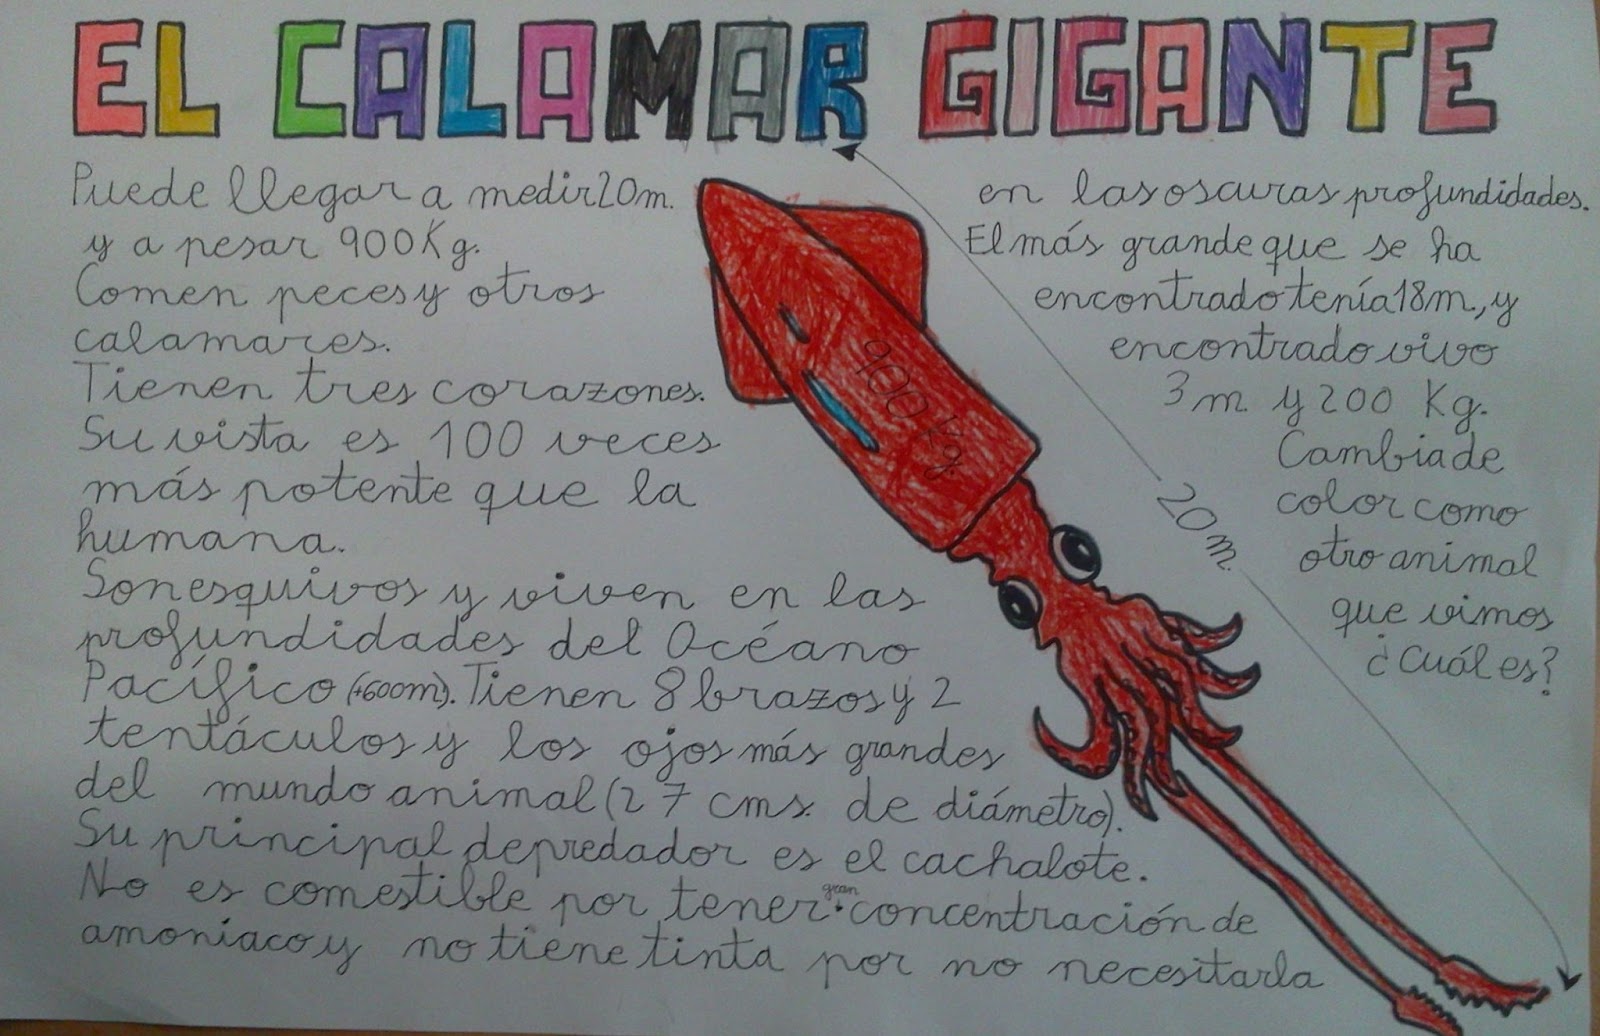 EL CALAMAR GIGANTE
Puede llegar a medir 20m.
y a pesar 900Kg.
Comen peces y otros
calamares.
Tienen tres corazones.
Su vista es 100 veces
más potente que la
humana.
Son esquivos y viven en las
profundidades del Océano
Pacífico (+600m). Tienen 8 brazos y 2
tentáculos y los ojos más grandes
del mundo animal (27 cms. de diámetro).
Su principal depredador es el cachalote.
No es comestible por tener gran concentración de
amoníaco y no tiene tinta por no necesitarla
en las oscuras profundidades.
El más grande que se ha
encontrado tenía 18m., y
encontrado vivo
3m y 200 Kg.
Cambia de
color como
otro animal
que vimos
¿Cuál es?
900 kg.
20 m.